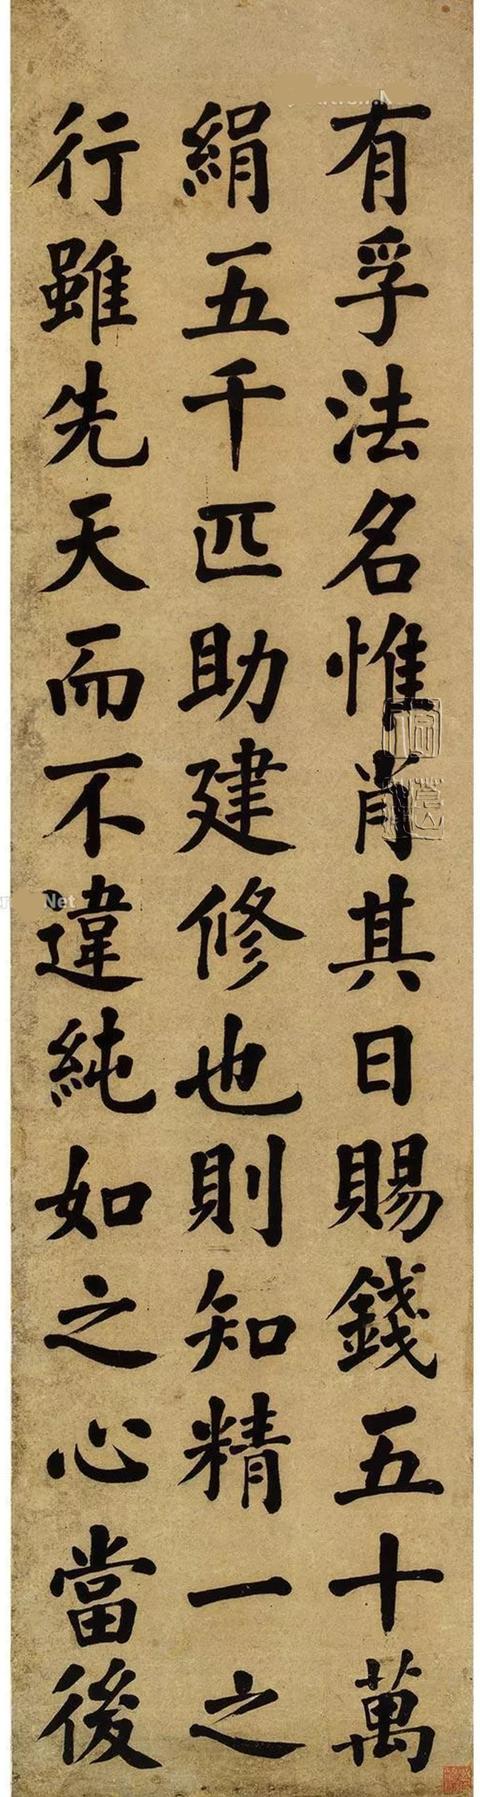 有孚法名惟肖其日賜錢五十萬
絹五千匹助建修也則知精一之
行雖先天而不違純如之心當後